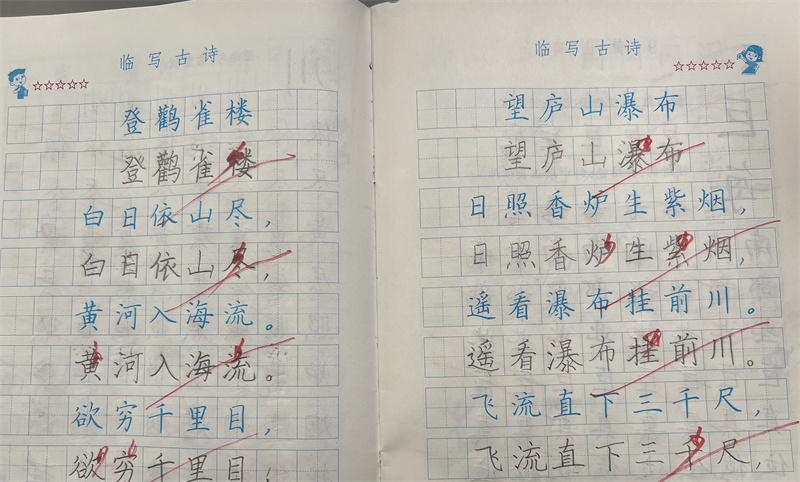 临写古诗
登鹳雀楼
登鹳雀楼
白日依山尽，
白日依山尽，
黄河入海流。
黄河入海流。
欲穷千里目，
欲穷千里目，
临写古诗
望庐山瀑布
望庐山瀑布
日照香炉生紫烟，
日照香炉生紫烟，
遥看瀑布挂前川。
遥看瀑布挂前川。
飞流直下三千尺，
飞流直下三千尺，